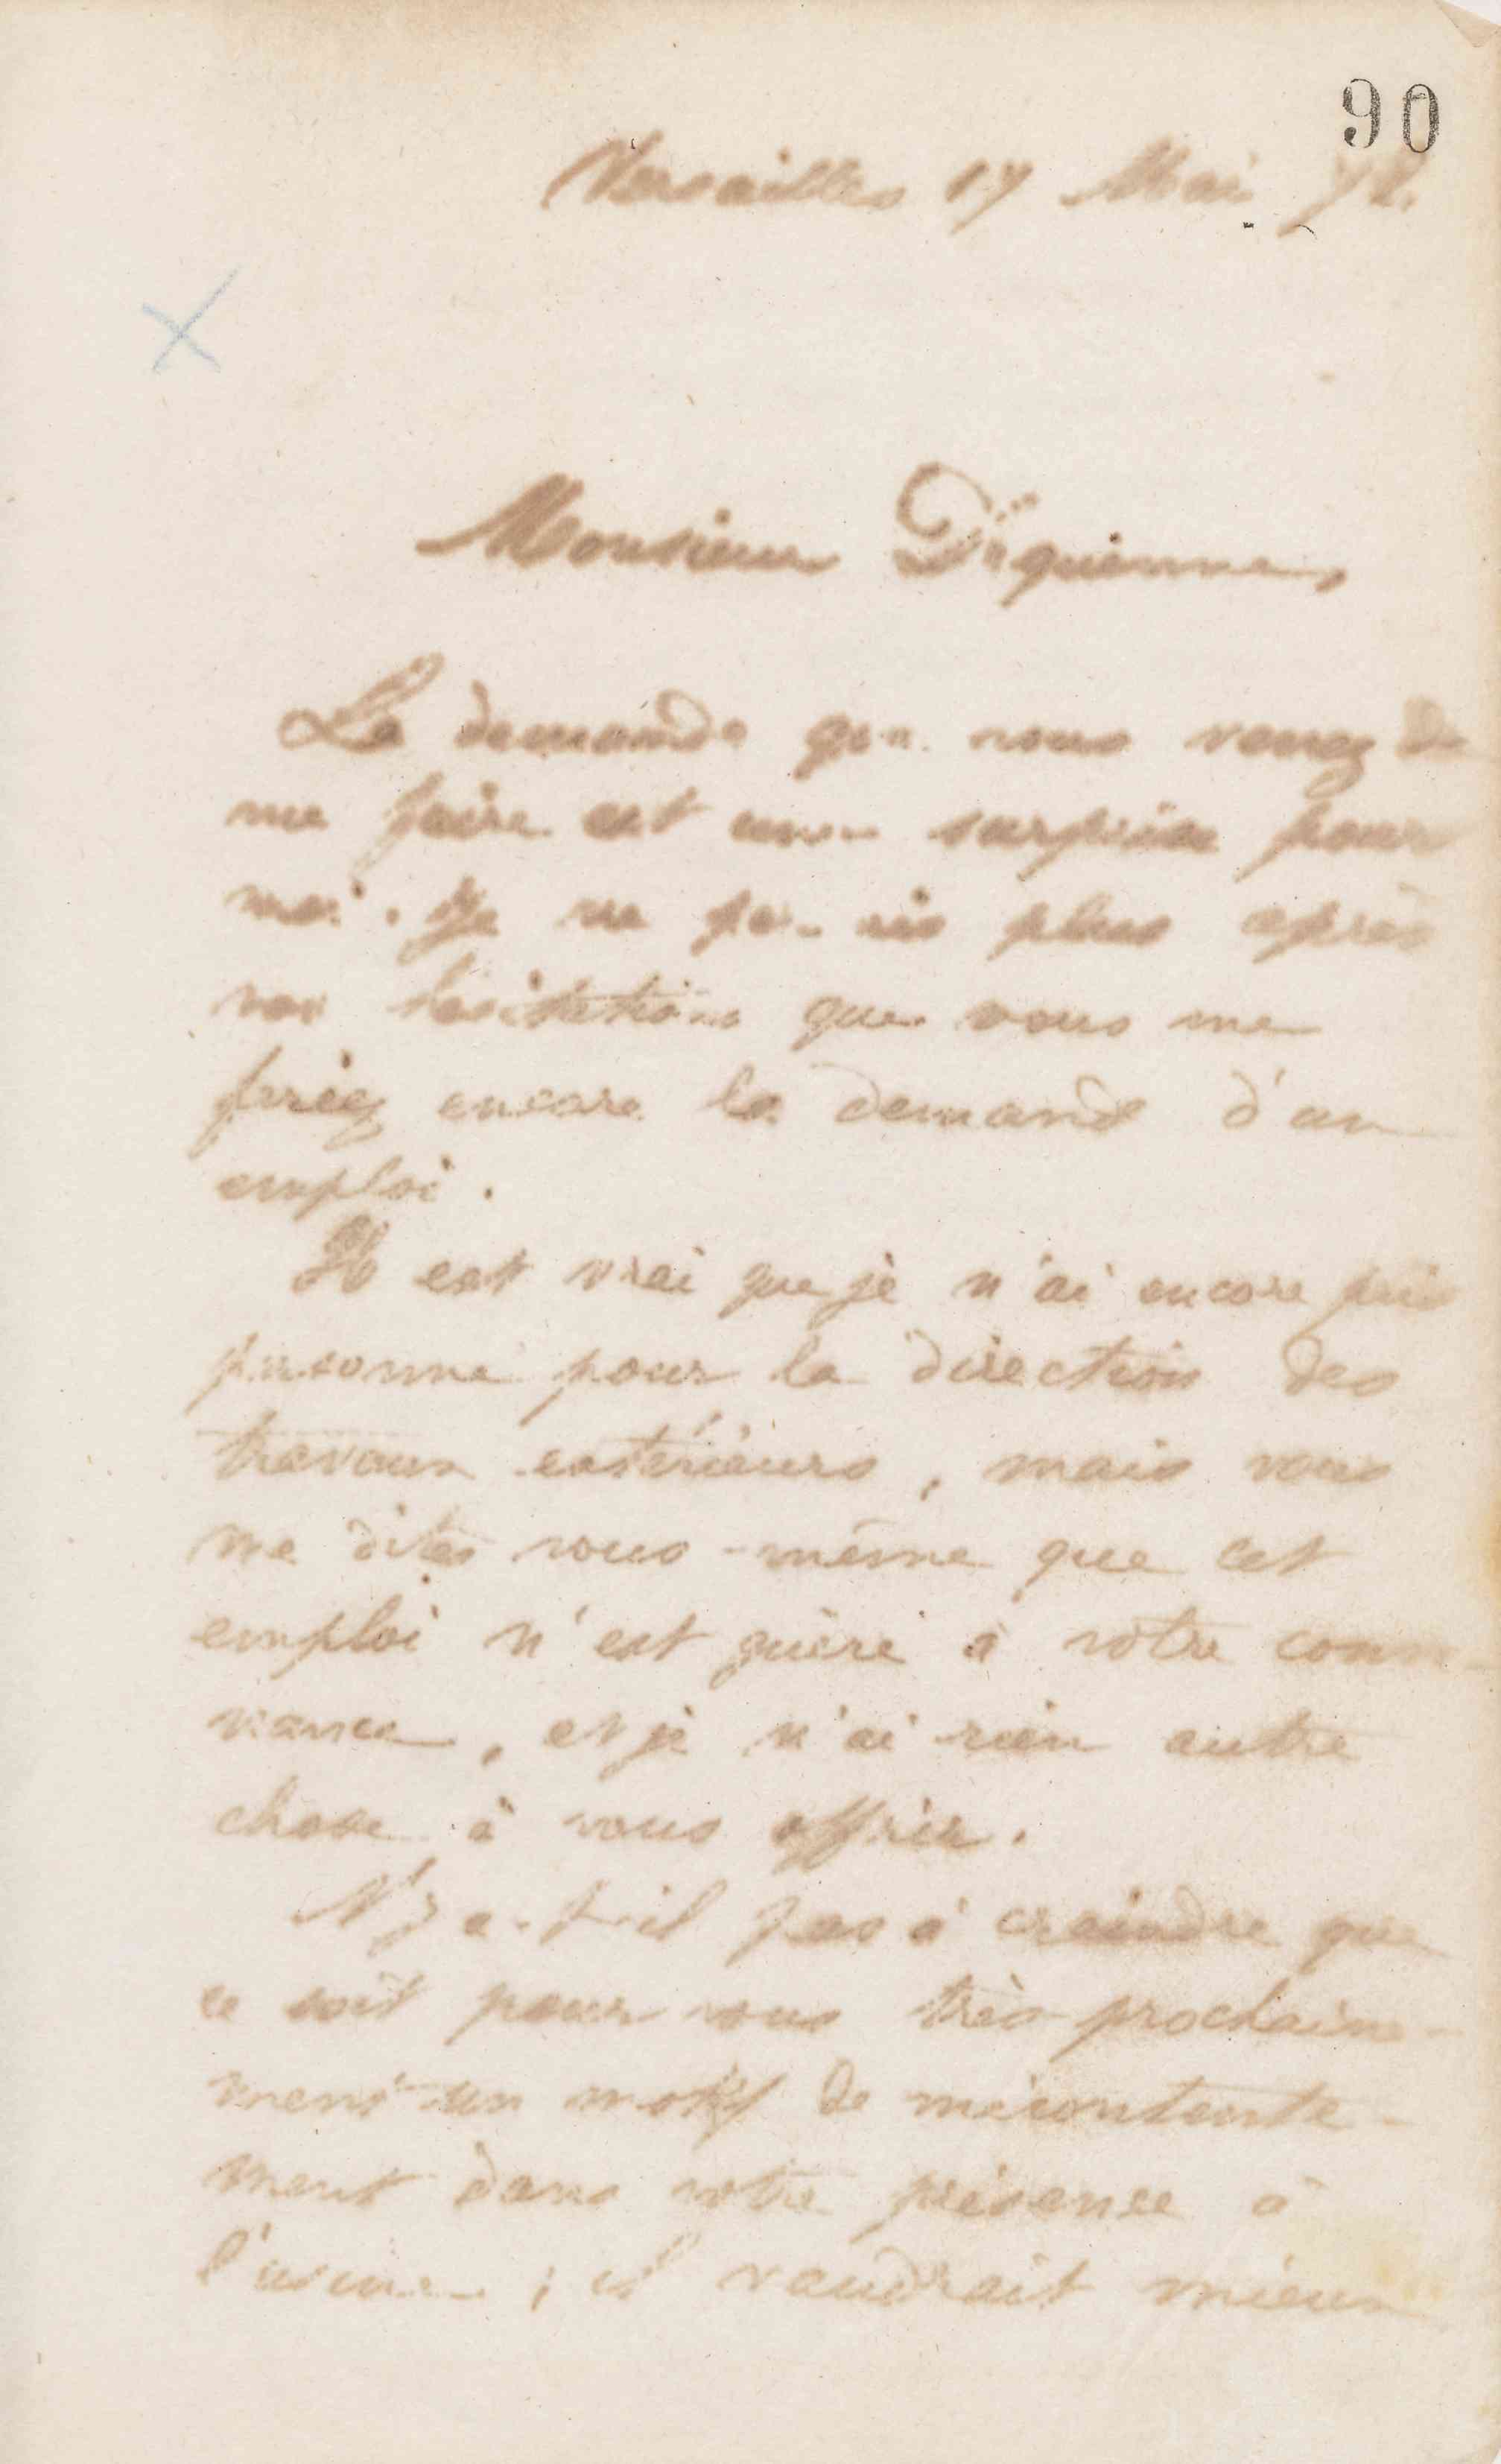 90
Versailles 17 Mai 72.
Monsieur Diquienne,
La demande que vous venez de
me faire est une surprise pour
moi. Je ne pensais plus après
vos hésitations que vous me
feriez encore la demande d'un
emploi.
Il est vrai que je n'ai encore pris
personne pour la direction des
travaux extérieurs, mais vous
me dites vous-même que cet
emploi n'est guère à votre conve-
nance, et je n'ai rien autre
chose à vous offrir.
N'y a-t-il pas à craindre que
ce soit pour vous très prochaine-
ment un motif de mécontente-
ment dans votre présence à
l'usine ; il vaudrait mieux